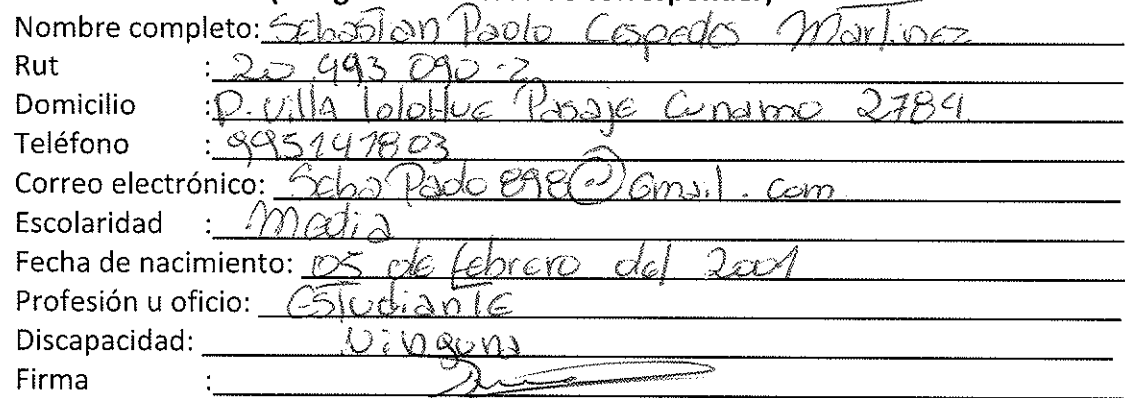 Nombre completo: Sebastian Paolo Cespedes Martinez
Rut : 20.493 090-2
Domicilio : P. Villa lolotue Pasaje Cunamo 2784
Teléfono : 995147803
Correo electrónico: SeboPaolo898@Gmail.com
Escolaridad : Media
Fecha de nacimiento: 05 de febrero del 2001
Profesión u oficio: Estudiante
Discapacidad: Ninguna
Firma :